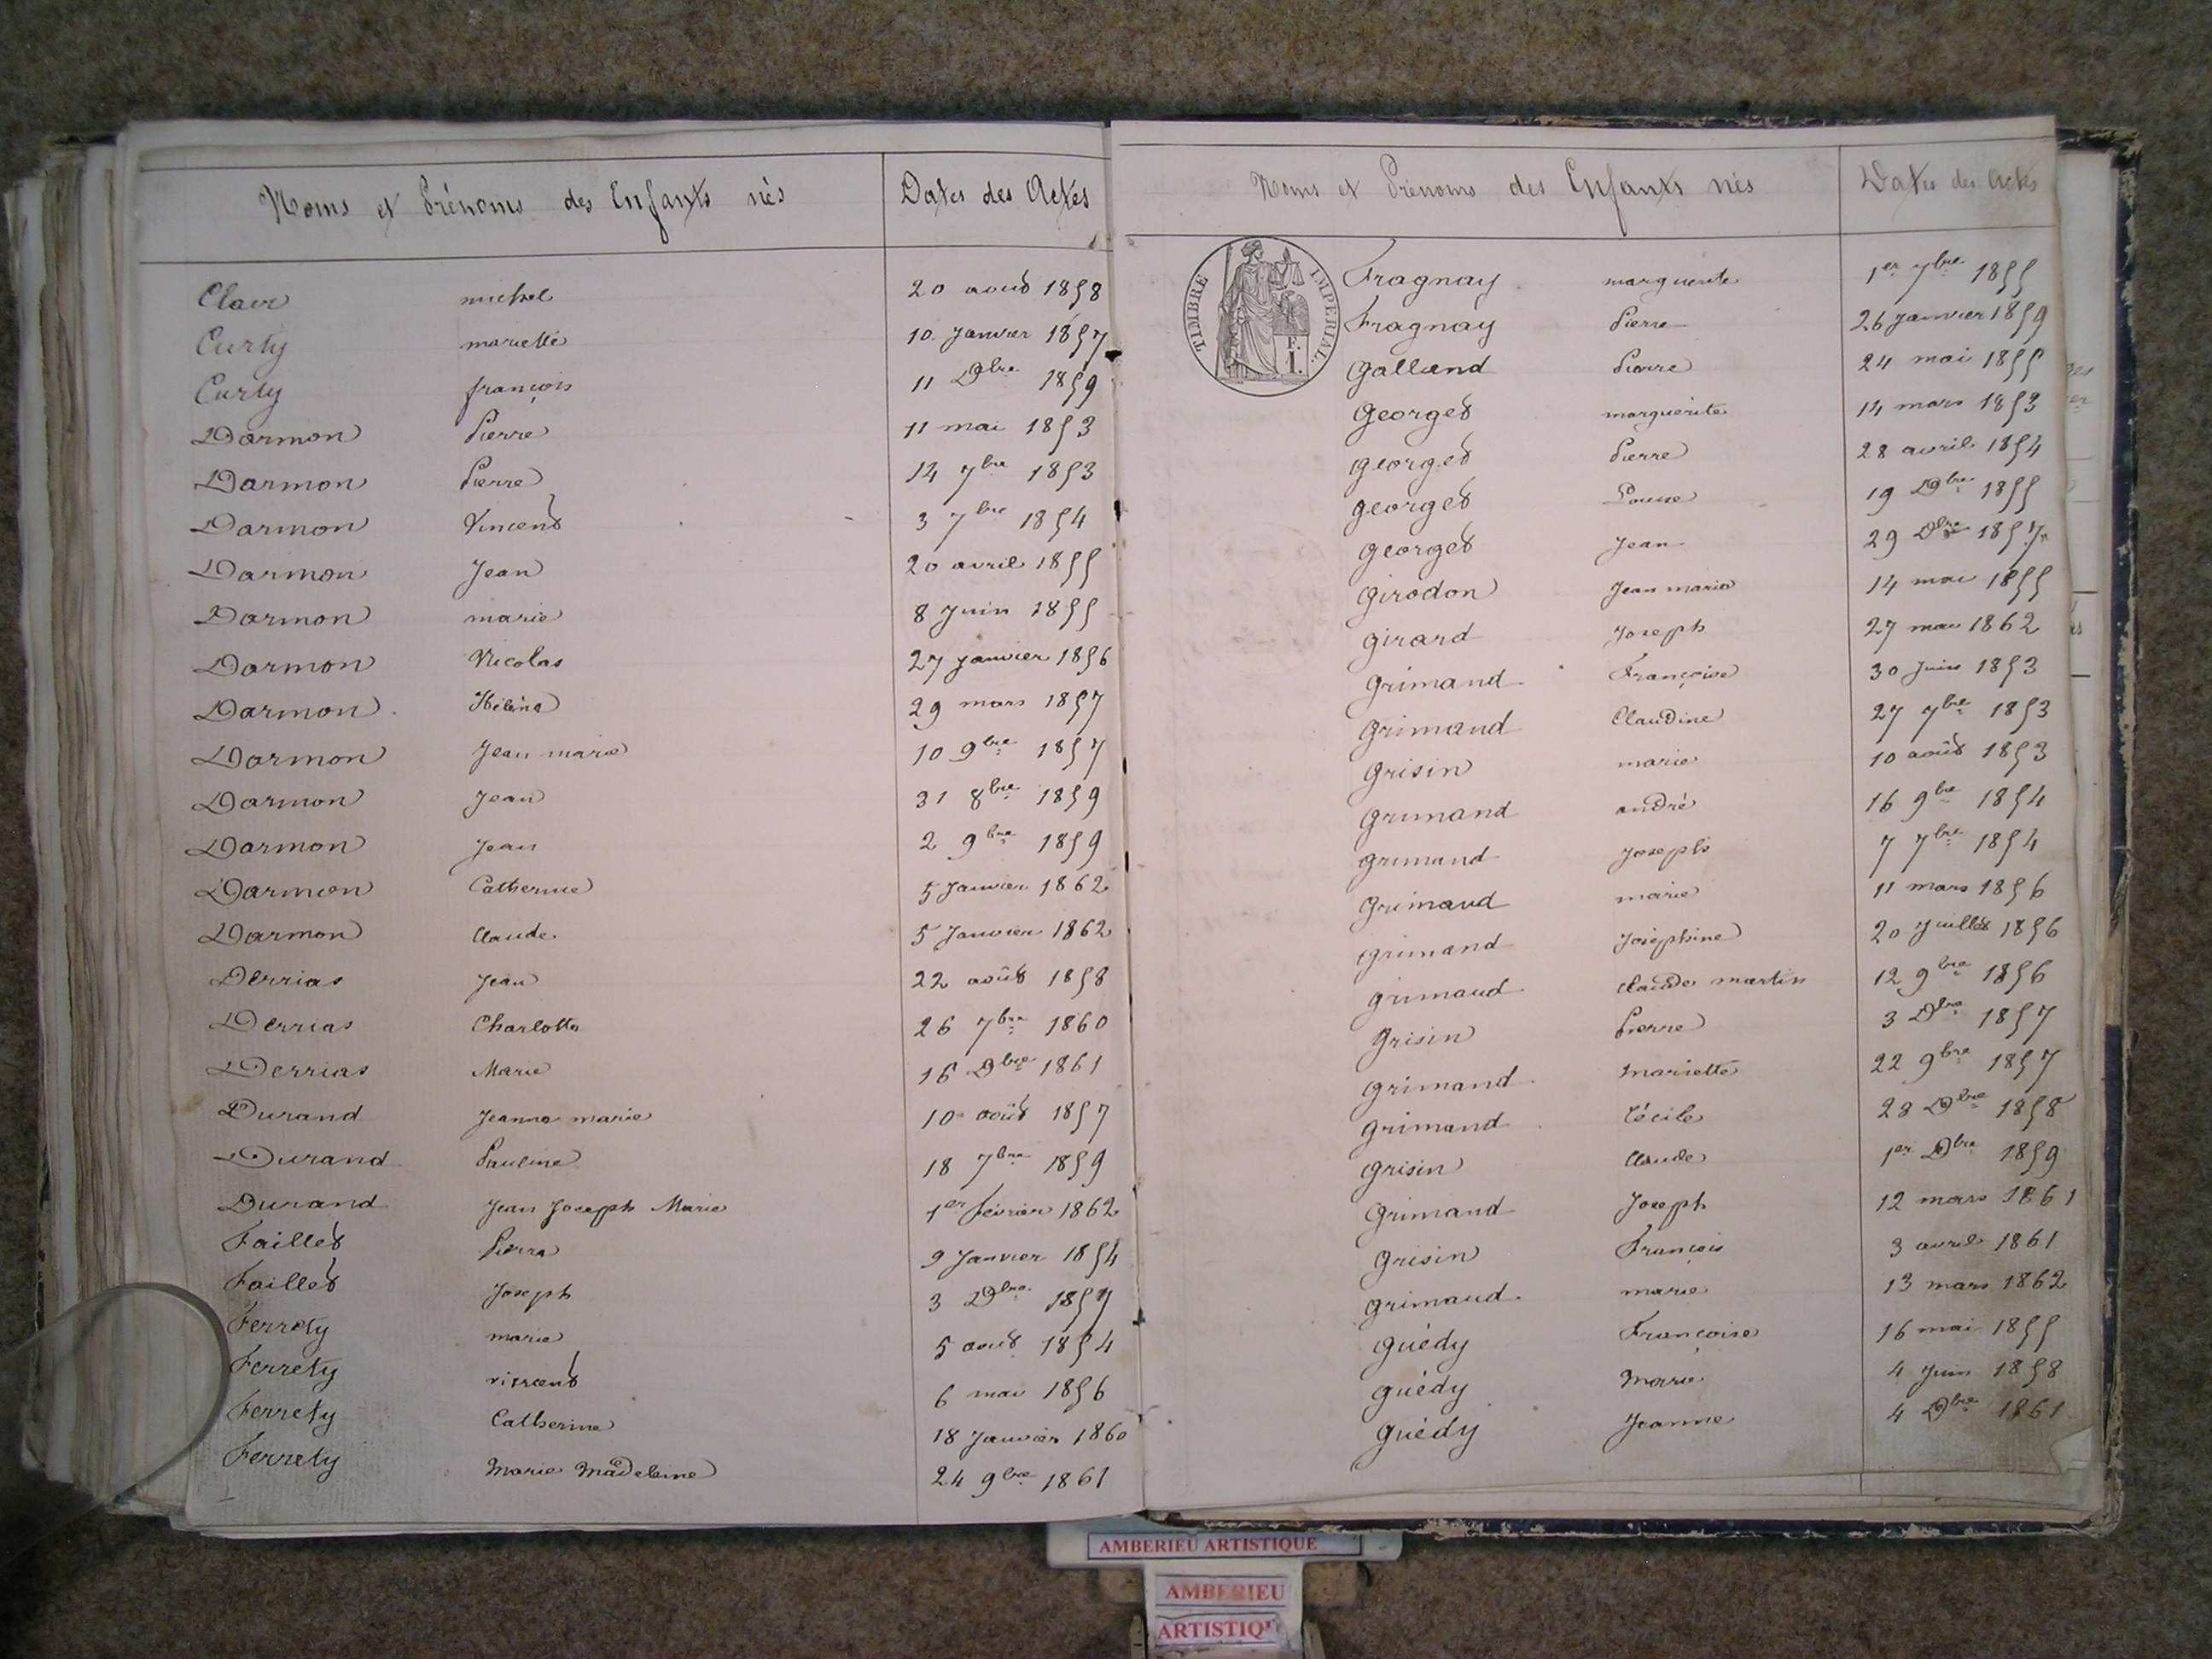 Noms et Prénoms des Enfants nés Dates des Actes
Clair michel 20 août 1858
Curty mariette 10 Janvier 1857
Curty françois 11 Dbre 1859
Darmon Pierre 11 mai 1853
Darmon Pierre 14 7bre 1853
Darmon Vincent 3 7bre 1854
Darmon Jean 20 avril 1855
Darmon marie 8 Juin 1855
Darmon Nicolas 27 janvier 1856
Darmon Hélèna 29 mars 1857
Darmon Jean marie 10 9bre 1857
Darmon Jean 31 8bre 1859
Darmon Jean 2 9bre 1859
Darmon Catherine 5 Janvier 1862
Darmon Claude 5 Janvier 1862
Derrias Jean 22 août 1858
Derrias Charlotte 26 7bre 1860
Derrias Marie 16 Dbre 1861
Durand Jeanne marie 10 août 1857
Durand Pauline 18 7bre 1859
Durand Jean Joseph Marie 1er février 1862
Faillet Pierre 9 Janvier 1854
Faillet Joseph 3 Dbre 1857
Ferrety marie 5 août 1854
Ferrety vincent 6 mai 1856
Ferrety Catherine 18 Janvier 1860
Ferrety Marie Madeleine 24 9bre 1861
Noms et Prénoms des Enfants nés Dates des Actes
TIMBRE IMPERIAL.
F.
1.
Fragnay marguerite 1er 7bre 1855
Fragnay Pierre 26 Janvier 1859
Galland Pierre 24 mai 1855
Georget marguérite 14 mars 1853
Georget Pierre 28 avril 1854
Georget Louise 19 Dbre 1855
Georget Jean 29 Dbre 1857
Girodon Jean marie 14 mai 1855
Girard Joseph 27 mai 1862
Grimand Françoise 30 Juin 1853
Grimand Claudine 27 7bre 1853
Grisin marie 10 août 1853
Grimand andré 16 9bre 1854
Grimand Joseph 7 7bre 1854
Grimand marie 11 mars 1856
Grimand Joséphine 20 Juillet 1856
Grimand claude martin 12 9bre 1856
Grisin Pierre 3 Dbre 1857
Grimand mariette 22 9bre 1857
Grimand Cécile 28 Dbre 1858
Grisin Claude 1er Dbre 1859
Grimand Joseph 12 mars 1861
Grisin François 3 avril 1861
Grimand marie 13 mars 1862
Guédy Françoise 16 mai 1855
Guédy Marie 4 Juin 1858
Guédy Jeanne 4 Dbre 1861
AMBERIEU ARTISTIQUE
AMBERIEU